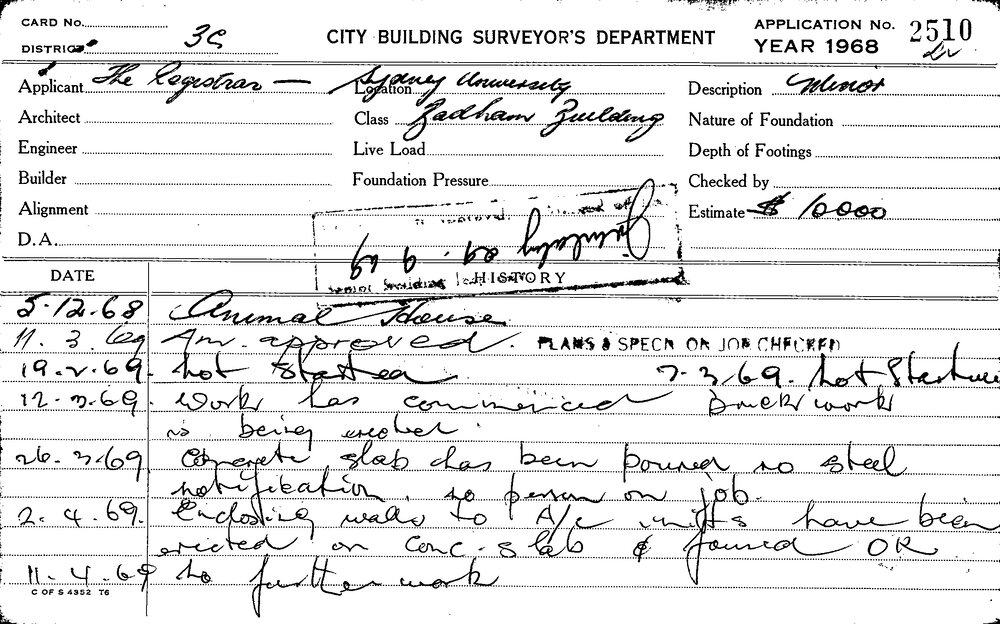 CARD No.
DISTRICT 3C
CITY BUILDING SURVEYOR'S DEPARTMENT
APPLICATION No. 2510
YEAR 1968
Applicant The Registrar — Location Sydney University Description Minor
Architect Class Badham Building Nature of Foundation
Engineer Live Load Depth of Footings
Builder Foundation Pressure Checked by
Alignment Estimate $ 10000
D.A. 29. 9. 69
DATE HISTORY
5.12.68 Animal House
11.3.69 Am. approved. PLANS & SPECN ON JOB CHECKED
19.2.69. not started 7.3.69. not started
12.3.69. Work has commenced brickwork
is being erected.
26.3.69 Concrete slab has been poured no steel
notification, no person on job.
2.4.69. Enclosing walls to A/C units have been
erected on conc. slab & found OK
11.4.69 no further work
C OF S 4352 T6